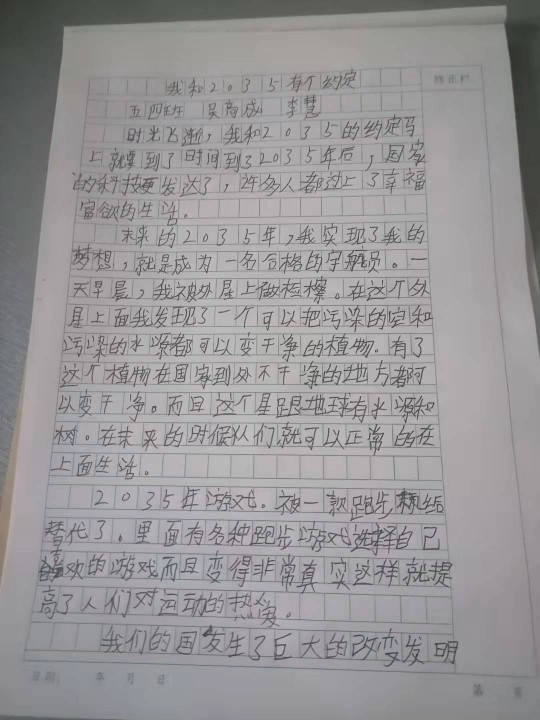 修正栏
我和2035有个约定
五四班 吴商成 李慧
时光飞逝，我和2035的约定马
上就要到了时间到了2035年后，国家
的科技更发达了，许多人都过上了幸福
富欲的生活。
未来的2035年，我实现了我的
梦想，就是成为一名合格的宇航员。一
天早晨，我被外星上做检擦。在这个外
星上面我发现了一个可以把污染的空和
污染的水源都可以变干净的植物。有了
这个植物在国家到处不干净的地方都可
以变干净。而且这个星跟地球有水源和
树。在未来的时候人们就可以正常的在
上面生活。
2035年游戏。被一款跑步机给
替代了。里面有各种跑步游戏选择自己
喜欢的游戏而且变得非常真实这样就提
高了人们对运动的热爱。
我们的国发生了巨大的改变发明
日期： 年 月 日
第 页